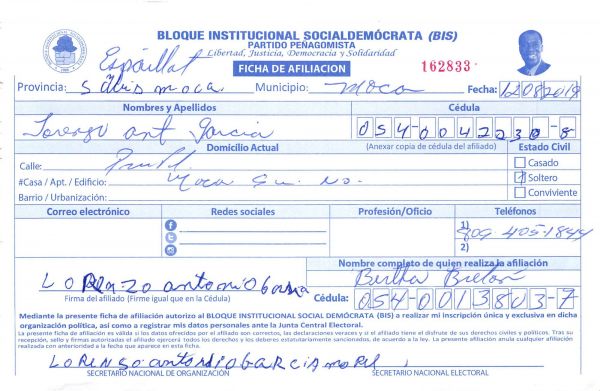 BLOQUE INSTITUCIONAL SOCIALDEMÓCRATA (BIS)
PARTIDO PEÑAGOMISTA
Libertad, Justicia, Democracia y Solidaridad
FICHA DE AFILIACION
162833
Espaillat
Provincia: Moca Municipio: Moca Fecha: 12082018
Nombres y Apellidos Cédula
Lorenzo ant Garcia 054-0042230-8
Domicilio Actual (Anexar copia de cédula del afiliado) Estado Civil
Calle: Casado
#Casa / Apt. / Edificio: Moca No. Soltero
Barrio / Urbanización: Conviviente
Correo electrónico Redes sociales Profesión/Oficio Teléfonos
1) 809-405-1844
2)
Nombre completo de quien realiza la afiliación
LORENZO antonio Bertha
Firma del afiliado (Firme igual que en la Cédula) Cédula: 054-0013803-7
Mediante la presente ficha de afiliación autorizo al BLOQUE INSTITUCIONAL SOCIAL DEMÓCRATA (BIS) a realizar mi inscripción única y exclusiva en dicha
organización política, así como a registrar mis datos personales ante la Junta Central Electoral.
La presente ficha de afiliación es válida si los datos ofrecidos por el afiliado son correctos, las declaraciones veraces y si el afiliado tiene el disfrute de sus derechos civiles y políticos. Tras su
recepción, sello y firmas autorizadas el afiliado ejercerá todos los derechos y los deberes estatutariamente sancionados, de acuerdo a la ley. La presente afiliación anula cualquier afiliación
realizada con anterioridad a la fecha que aparece en esta ficha.
LORENSO antonio GARCIA
SECRETARIO NACIONAL DE ORGANIZACIÓN SECRETARIO NACIONAL ELECTORAL